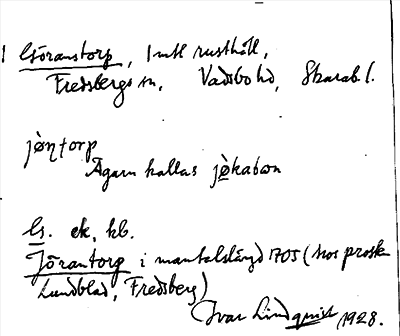 1 Göranstorp, 1 mtl rusthåll,
Fredsbergs sn, Vadsbo hd, Skarab. l.
jòṇtorp
Ägarn kallas jòkabɷn
G. ek. kb.
Jörantorp i mantalslängd 1705 (hos prosk
Lundblad, Fredsberg)
Ivar Lindquist 1928.